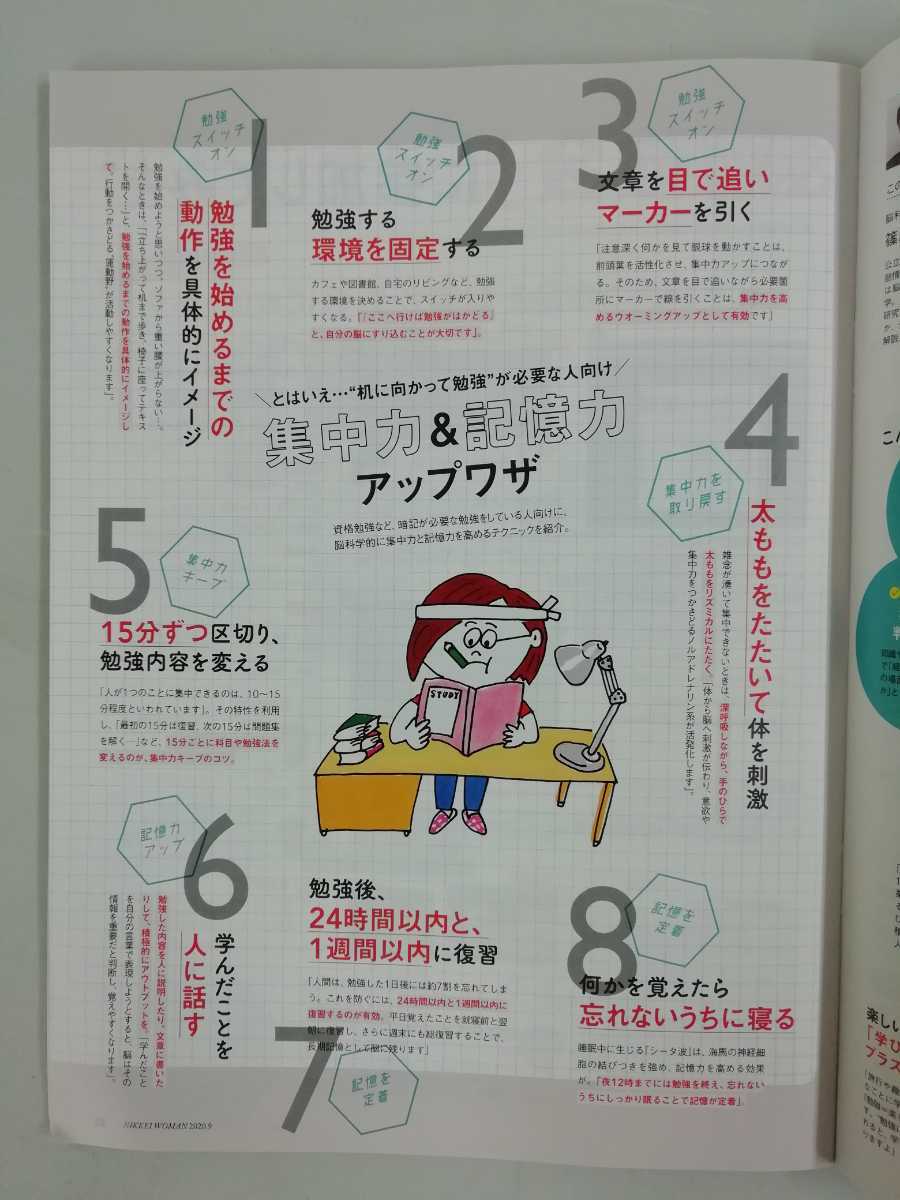 ＼とはいえ…“机に向かって勉強”が必要な人向け／
集中力&記憶力
アップワザ
資格勉強など、暗記が必要な勉強をしている人向けに、
脳科学的に集中力と記憶力を高めるテクニックを紹介。
1
勉強
スイッチ
オン
勉強を始めるまでの
動作を具体的にイメージ
勉強を始めようと思いつつ、ソファから重い腰が上がらない…。
そんなときは、「『立ち上がって机まで歩き、椅子に座ってテキス
トを開く…』と、勉強を始めるまでの動作を具体的にイメージし
て。行動をつかさどる『運動野』が活動しやすくなります」。
2
勉強
スイッチ
オン
勉強する
環境を固定する
カフェや図書館、自宅のリビングなど、勉強
する環境を決めることで、スイッチが入りや
すくなる。「『ここへ行けば勉強がはかどる』
と、自分の脳にすり込むことが大切です」。
3
勉強
スイッチ
オン
文章を目で追い
マーカーを引く
「注意深く何かを見て眼球を動かすことは、
前頭葉を活性化させ、集中力アップにつなが
る。そのため、文章を目で追いながら必要箇
所にマーカーで線を引くことは、集中力を高
めるウオーミングアップとして有効です」
4
集中力を
取り戻す
太ももをたたいて体を刺激
雑念が湧いて集中できないときは、深呼吸しながら、手のひらで
太ももをリズミカルにたたく。「体から脳へ刺激が伝わり、意欲や
集中力をつかさどるノルアドレナリン系が活発化します」。
5
集中力
キープ
15分ずつ区切り、
勉強内容を変える
「人が1つのことに集中できるのは、10〜15
分程度といわれています」。その特性を利用
し、「最初の15分は復習、次の15分は問題集
を解く…」など、15分ごとに科目や勉強法を
変えるのが、集中力キープのコツ。
STUDY
6
記憶力
アップ
学んだことを
人に話す
勉強した内容を人に説明したり、文章に書いた
りして、積極的にアウトプットを。「学んだこと
を自分の言葉で表現しようとすると、脳はその
情報を重要だと判断し、覚えやすくなります」。
勉強後、
24時間以内と、
1週間以内に復習
「人間は、勉強した1日後には約7割を忘れてしま
う。これを防ぐには、24時間以内と1週間以内に
復習するのが有効。平日覚えたことを就寝前と翌
朝に復習し、さらに週末にも総復習することで、
長期記憶として脳に残ります」
7
記憶を
定着
8
記憶を
定着
何かを覚えたら
忘れないうちに寝る
睡眠中に生じる「シータ波」は、海馬の神経細
胞の結びつきを強め、記憶力を高める効果
が。「夜12時までには勉強を終え、忘れない
うちにしっかり眠ることで記憶が定着」。
NIKKEI WOMAN 2020.9